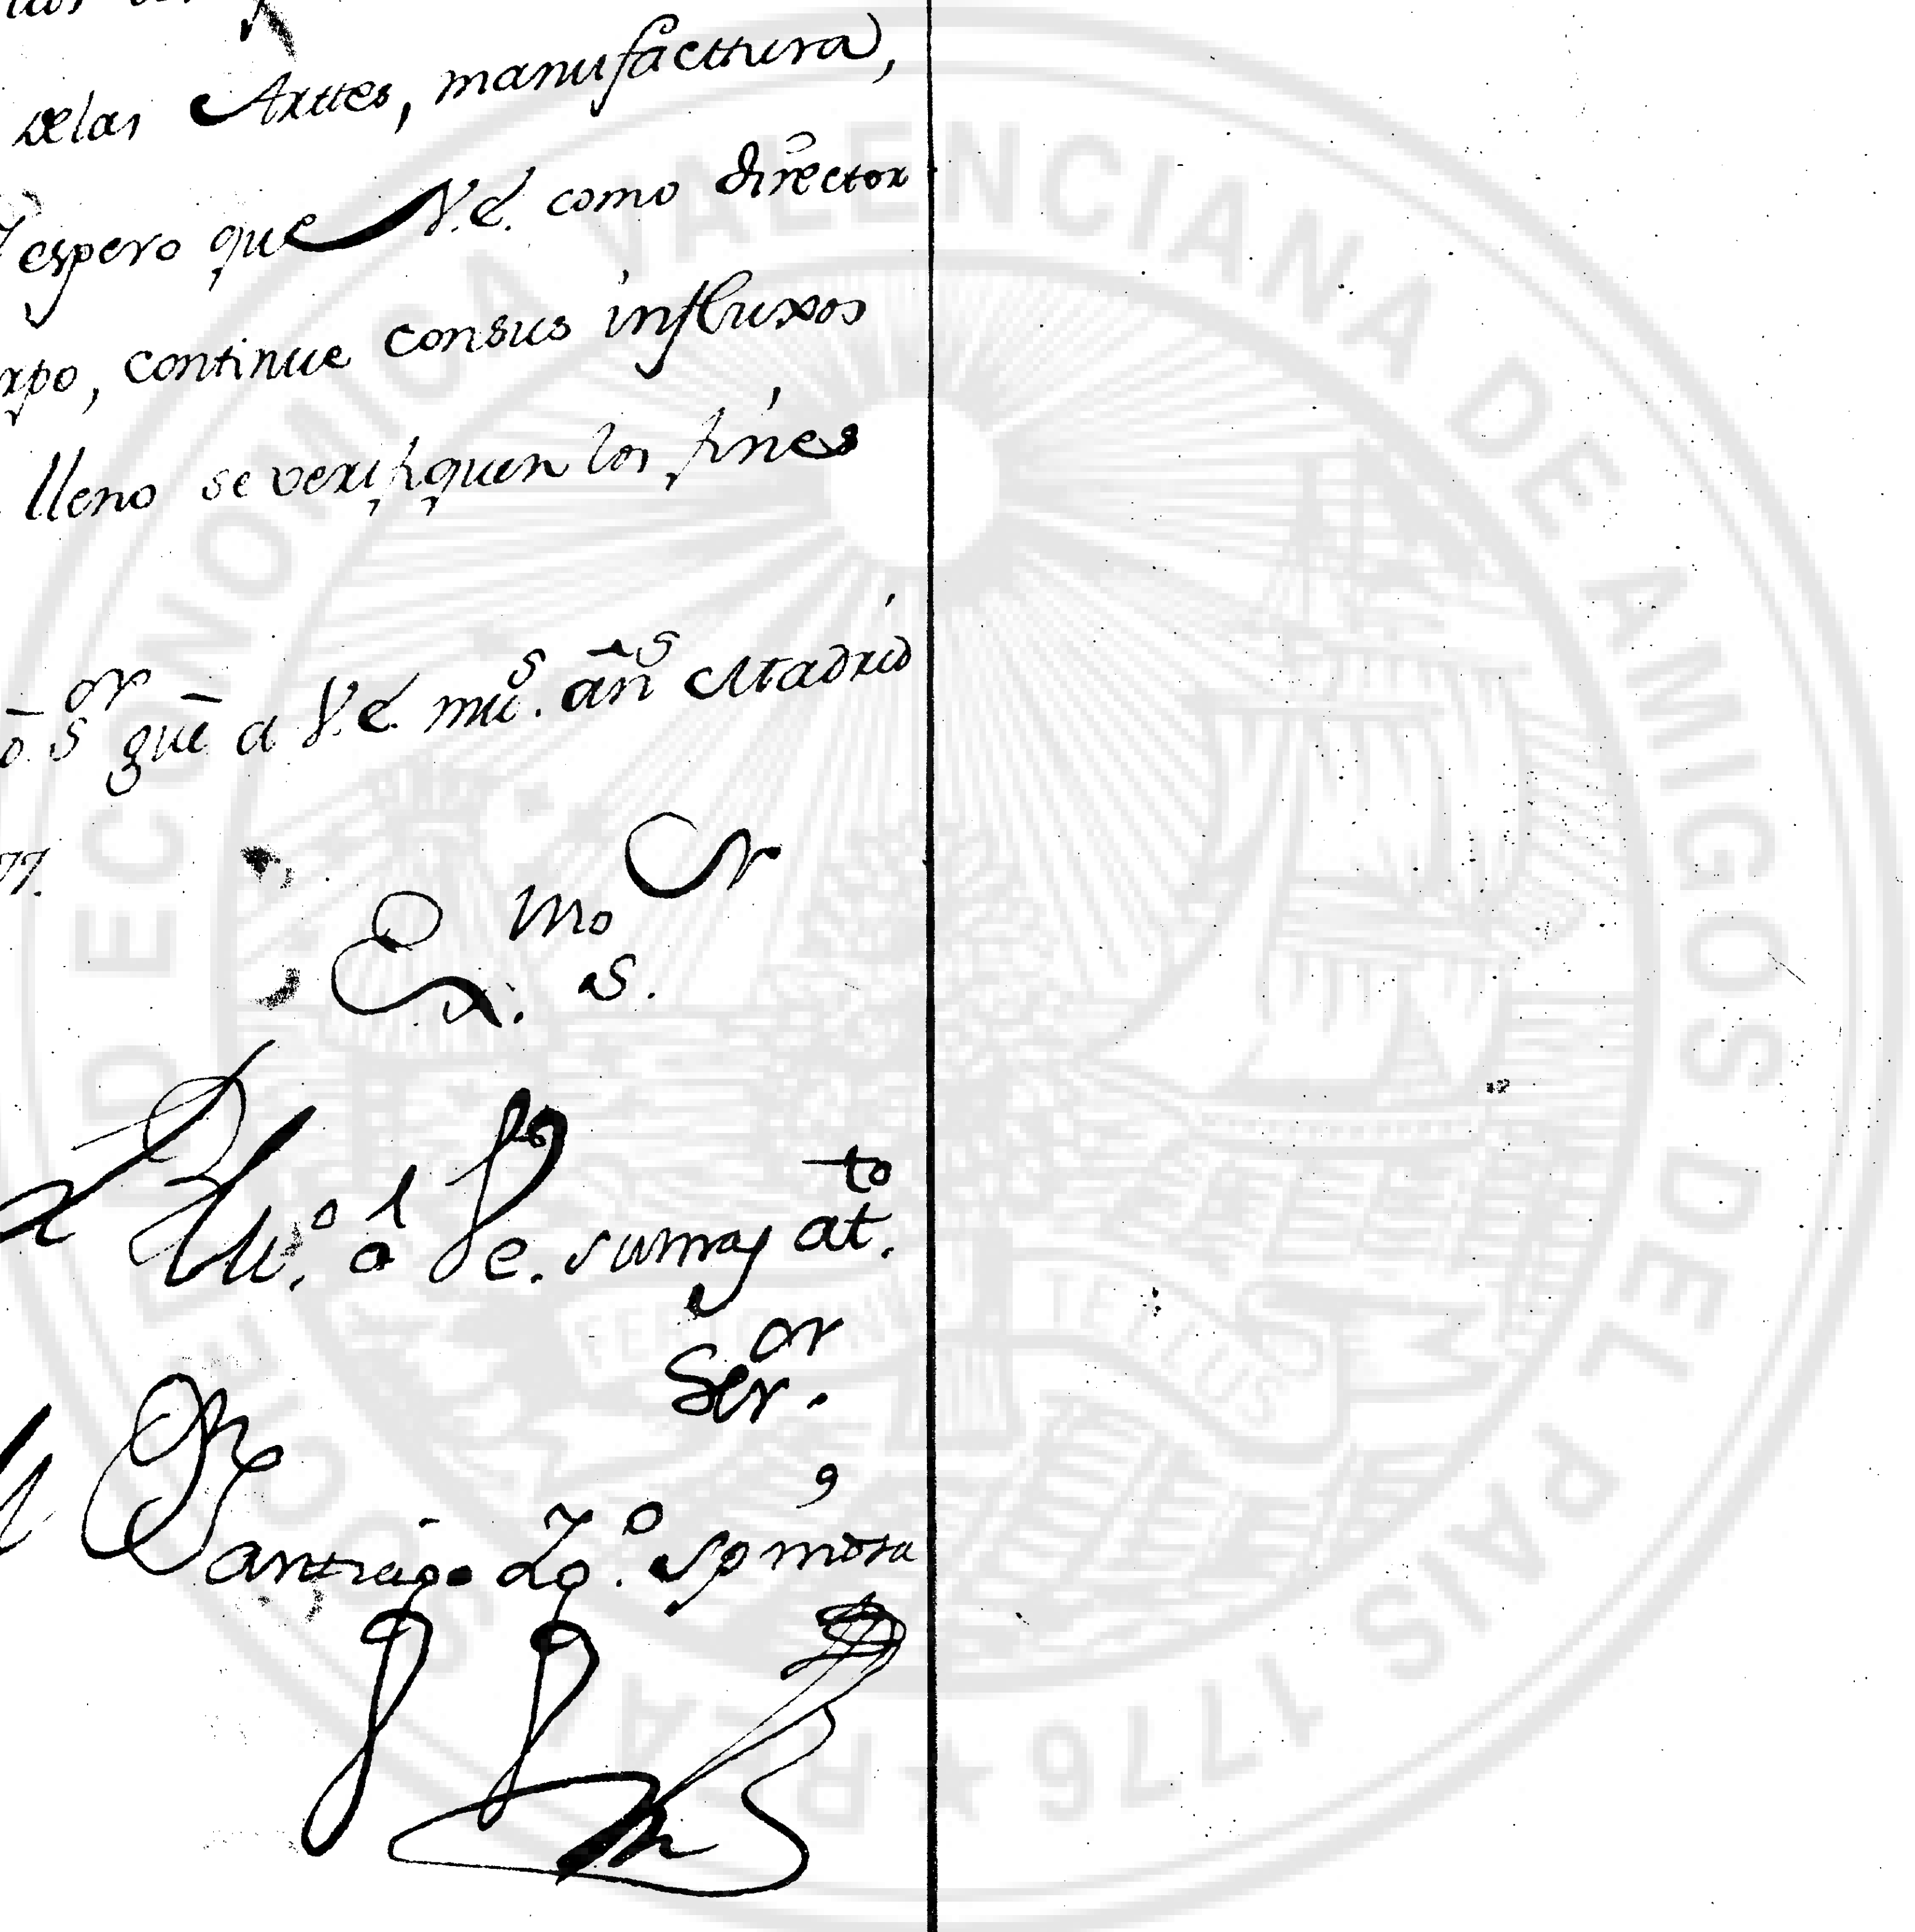 delas Arttes, manufacttura,
espero que V.E. como director
rpo, continue consus influxos
lleno se verifiquen los fines
or gue a V.E. mus. ans Madrid
77.
Exmo. Sr.
S.
a V.E. su mas atto.
Seror.
Santiago Ygo. Spinosa
SOCIEDAD ECONOMICA VALENCIANA DE AMIGOS DEL PAIS 1776